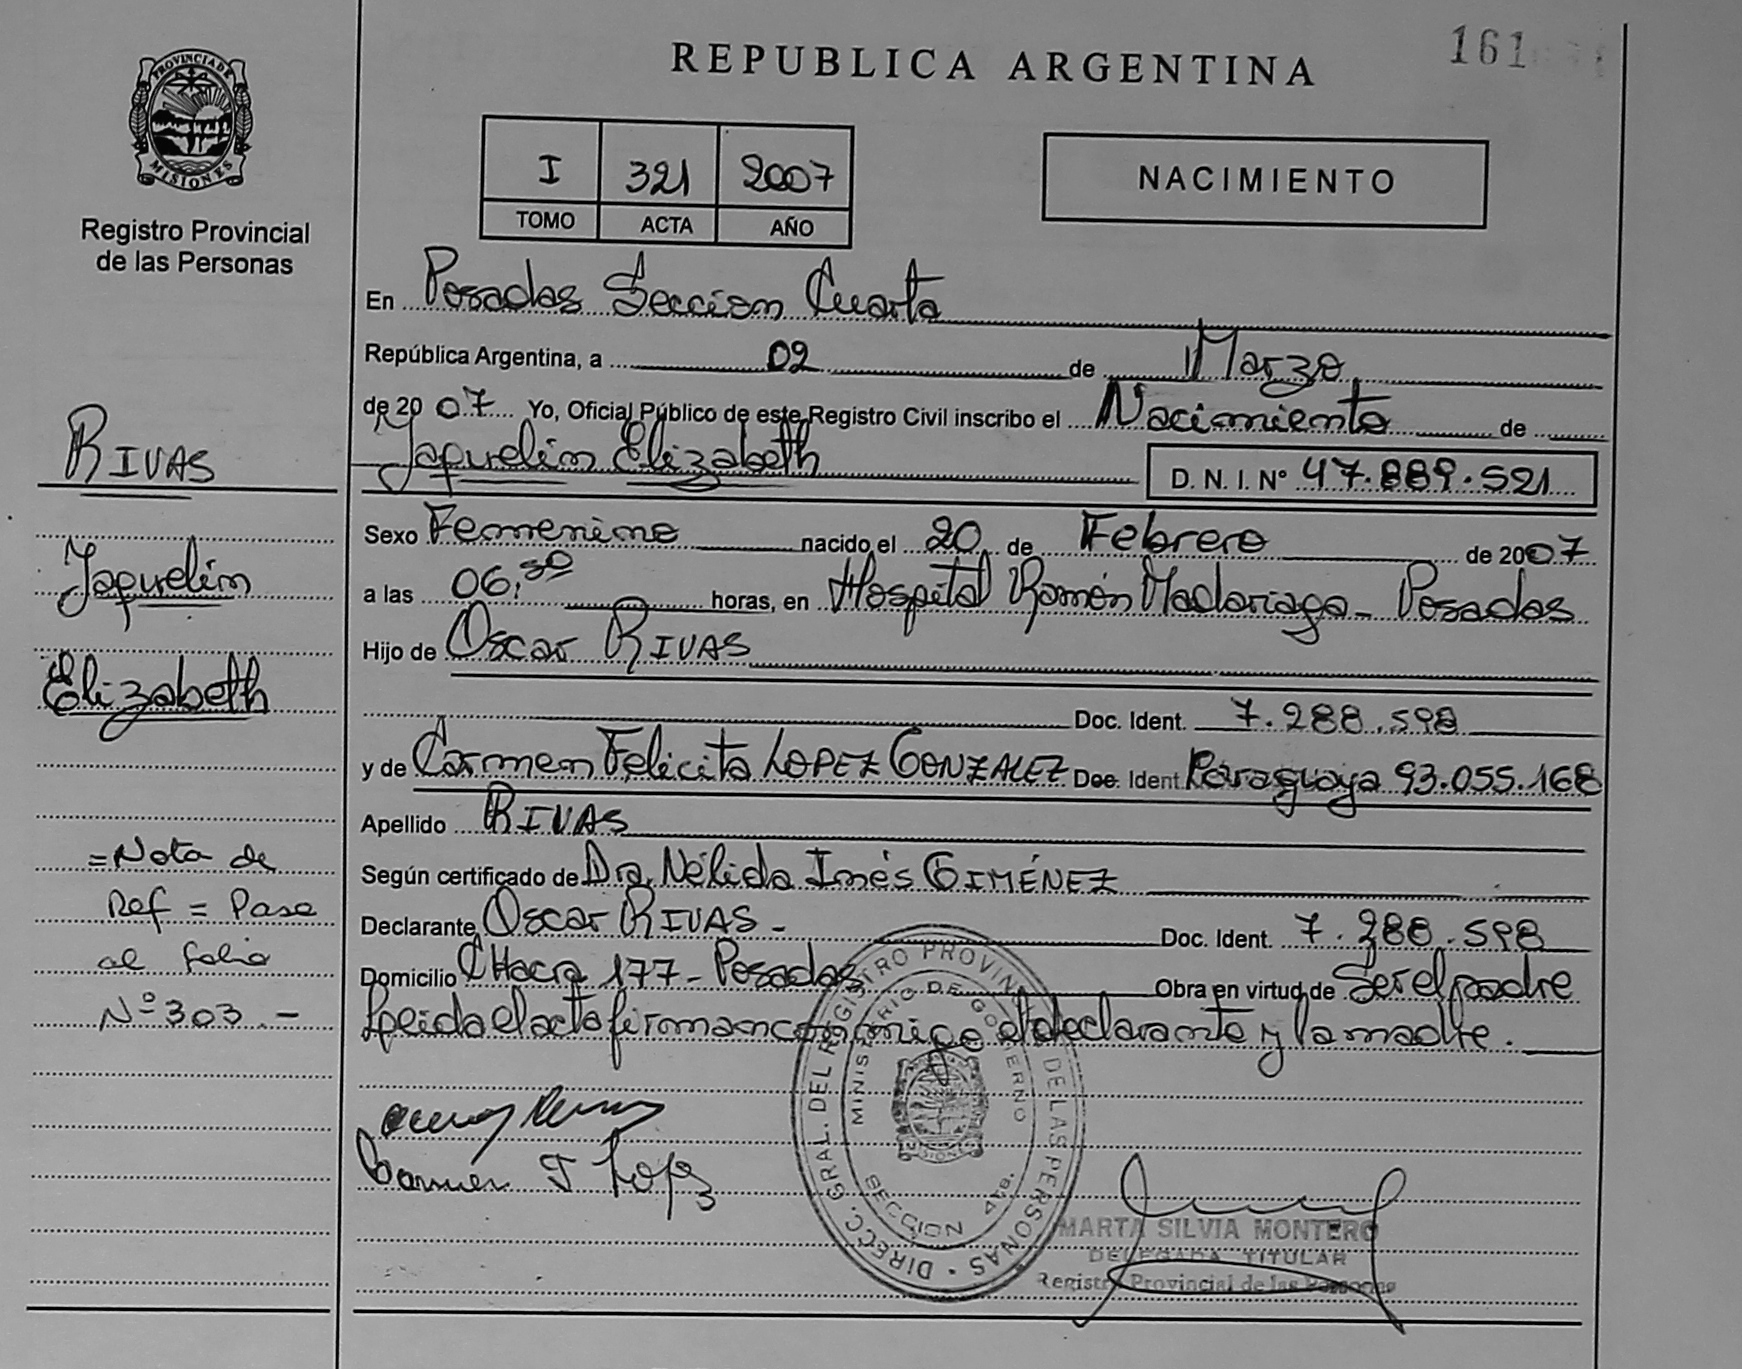 161
REPUBLICA ARGENTINA
PROVINCIA DE
MISIONES
Registro Provincial
de las Personas
I 321 2007
TOMO ACTA AÑO
NACIMIENTO
En Posadas Sección Cuarta
República Argentina, a 02 de Marzo
de 2007 Yo, Oficial Público de este Registro Civil inscribo el Nacimiento de
Jaquelin Elizabeth D. N. I. Nº 47.889.521
RIVAS
Sexo Femenino nacido el 20 de Febrero de 2007
Jaquelin
a las 06,30 horas, en Hospital Ramón Madariaga - Posadas
Hijo de Oscar RIVAS
Elizabeth
Doc. Ident. 7.288.598
y de Carmen Felicita LOPEZ GONZALEZ Doc. Ident. Paraguaya 93.055.168
Apellido RIVAS
=Nota de
Ref = Pase
al folio
Nº 303.-
Según certificado de Dra. Nélida Inés GIMÉNEZ
Declarante Oscar RIVAS - Doc. Ident. 7.288.598
Domicilio CHacra 177 - Posadas Obra en virtud de Ser el padre
Leída el acta firman conmigo el declarante y la madre.
Carmen F Lopez
DIRECC. GRAL. DEL REGISTRO PROVINCIAL DE LAS PERSONAS
MINISTERIO DE GOBIERNO
SECCION 4ta.
MISIONES
MARTA SILVIA MONTERO
DELEGADA TITULAR
Registro Provincial de las Personas